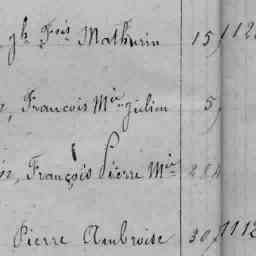 gh Fois Mathurin 15 112
François Mie Julien 5
François Pierre Mie
Pierre Ambroise 30 1112